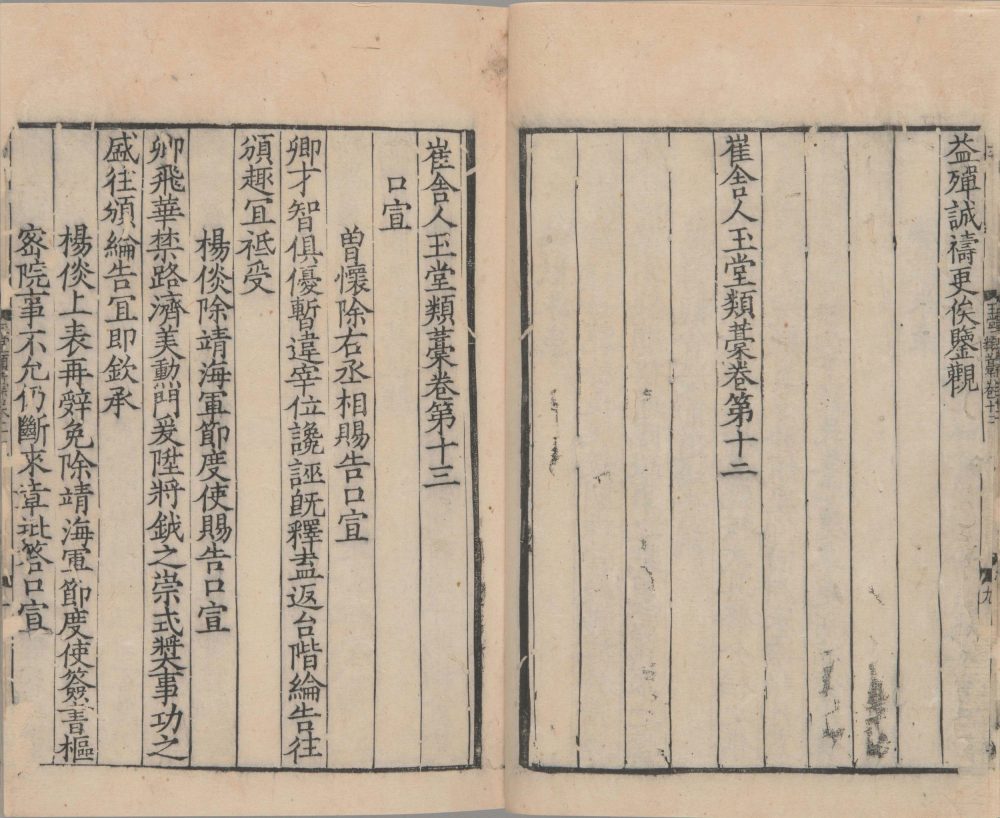 益殫誠禱更俟鑒觀
崔舍人玉堂類藁卷第十二
九
崔舍人玉堂類藁卷第十三
口宣
曾懷除右丞相賜告口宣
卿才智俱優暫違宰位讒誣旣釋盍返台階綸告往
頒趣冝祗受
楊倓除靖海軍節度使賜告口宣
卿飛華禁路濟美勳門爰陞將鉞之崇式奬事功之
盛往頒綸告冝即欽承
楊倓上表再辭免除靖海軍節度使簽書樞
密院事不允仍斷來章批答口宣